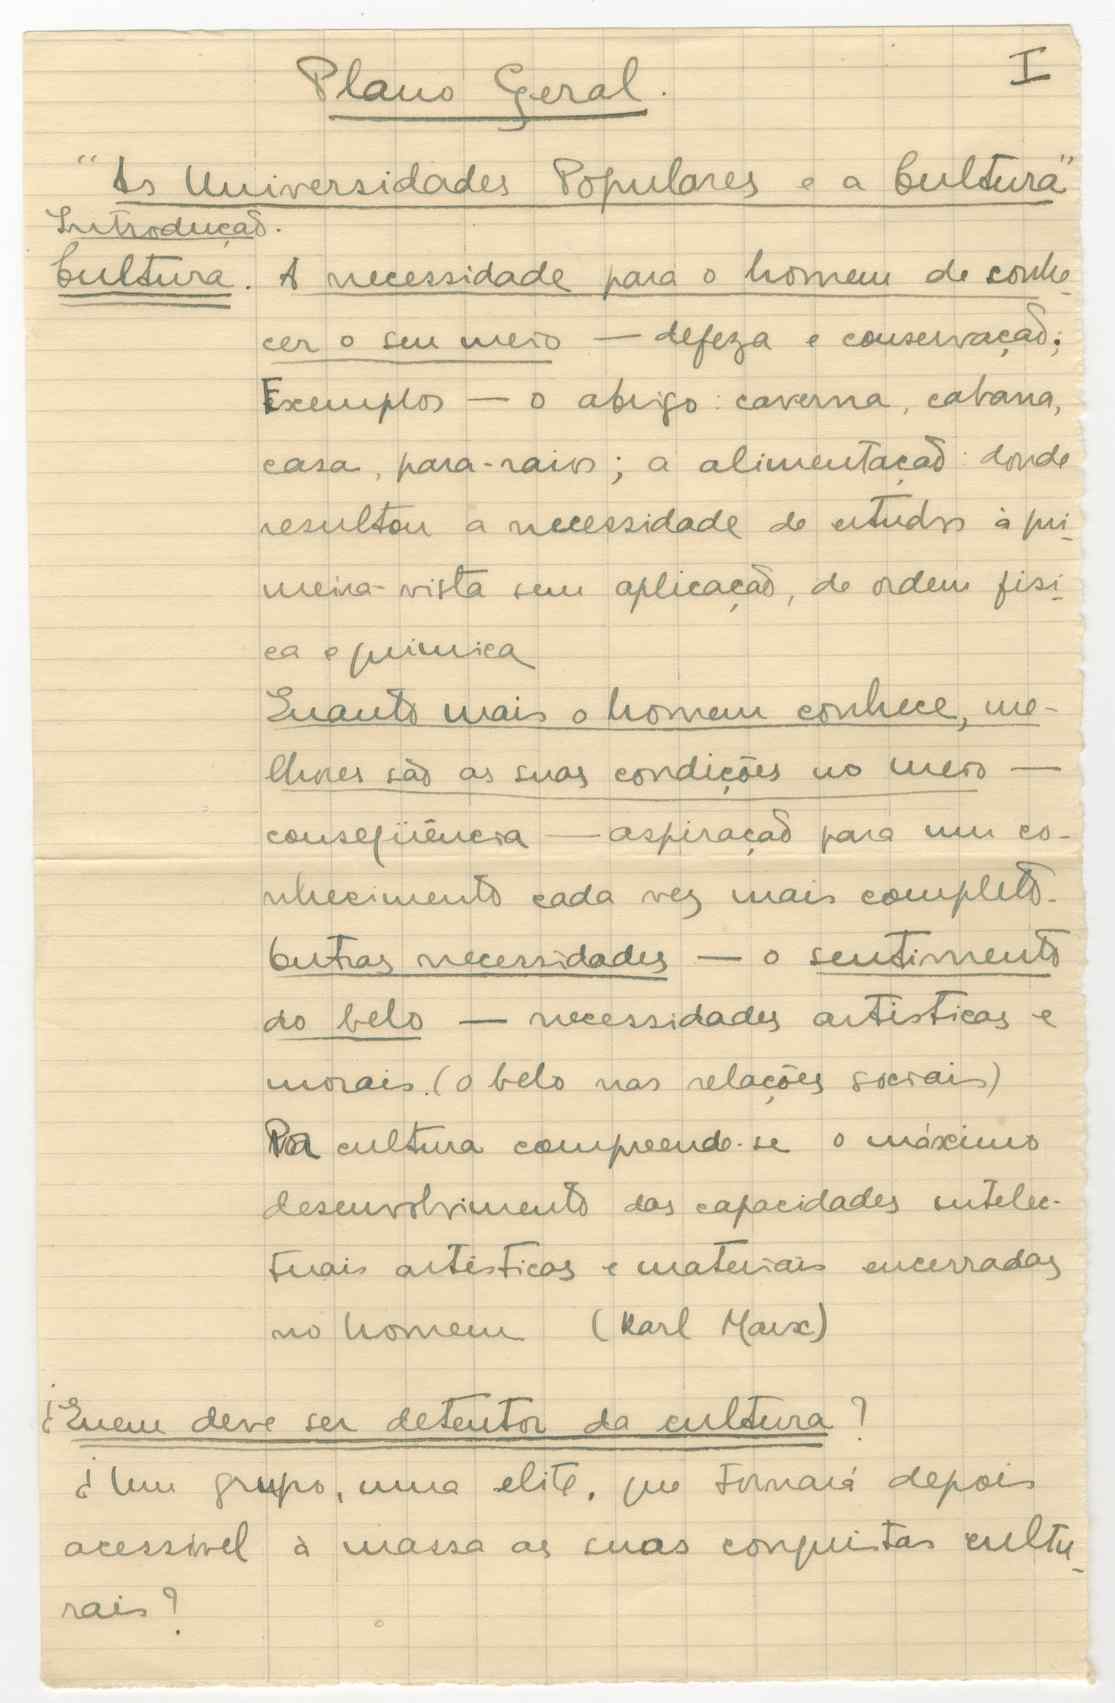 I
Plano Geral.
"As Universidades Populares e a Cultura"
Introdução.
Cultura. A necessidade para o homem de conhe-
cer o seu meio — defeza e conservação;
Exemplos — o abrigo: caverna, cabana,
casa, para-raios; a alimentação: donde
resultou a necessidade de estudos à pri-
meira-vista sem aplicação, de ordem fisi-
ca e quimica
Quanto mais o homem conhece, me-
lhores são as suas condições no meio —
conseqüência — aspiração para um co-
nhecimento cada vez mais completo.
Outras necessidades — o sentimento
do belo — necessidades artisticas e
morais. (O belo nas relações sociais)
Por cultura compreende-se o máximo
desenvolvimento das capacidades intelec-
tuais artisticas e materiais encerradas
no homem (Karl Marx)
¿Quem deve ser detentor da cultura?
¿Um grupo, uma elite, que tornará depois
acessível à massa as suas conquistas cultu-
rais?